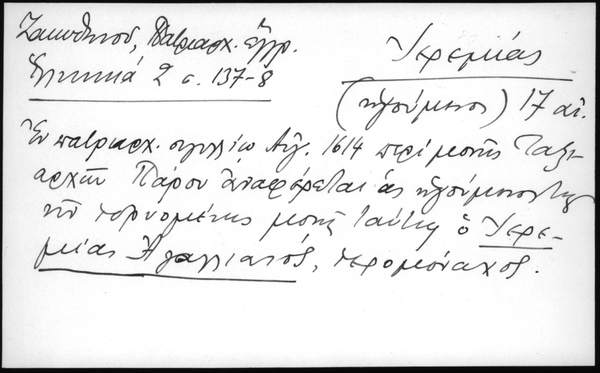 Ζακυθηνοῦ, Πατριαρχ. ἔγγρ.
Ἑλληνικά 2 σ. 137-8
Ἱερεμίας
(ἡγούμενος) 17 αἰ.
Ἐν πατριαρχ. σιγιλλίῳ Αὐγ. 1614 περὶ μονῆς Ταξι-
αρχῶν Πάρου ἀναφέρεται ὡς ἡγούμενος
τῆς μονῆς ταύτης ὁ Ἱερε-
μίας Ἀγαλλιανός, ἱερομόναχος.